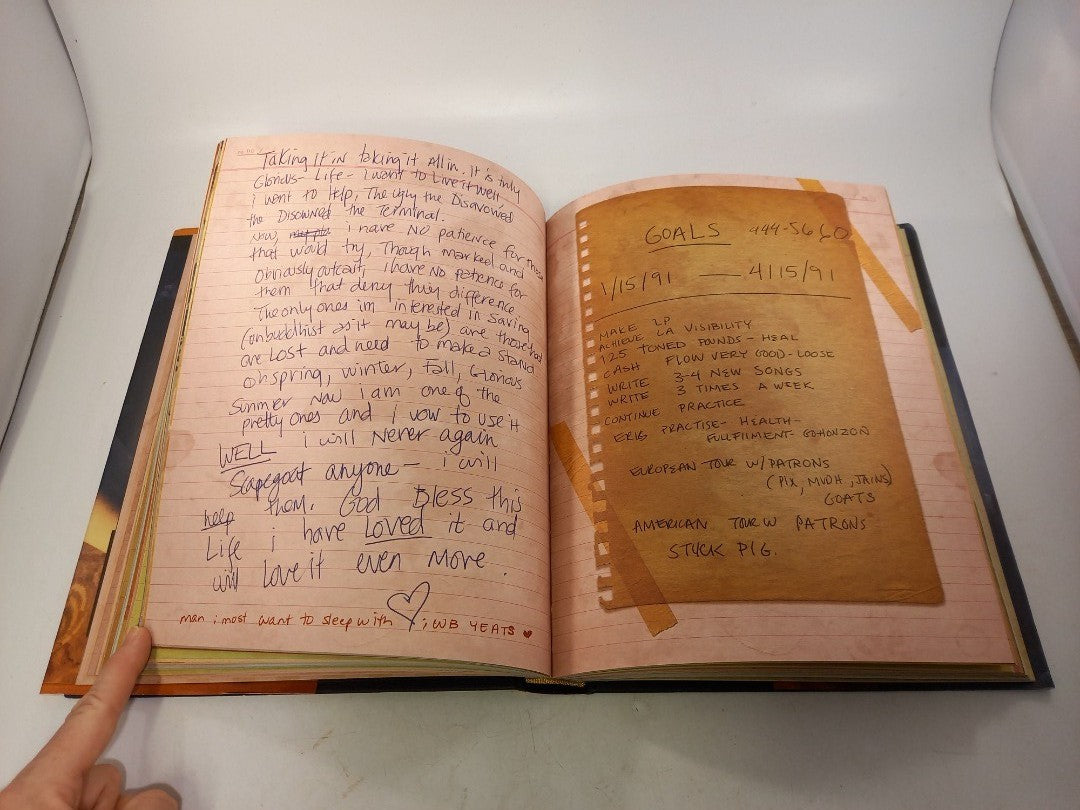 Taking it in taking it All in. it is truly
Glorious- Life- i want to Live it well
i want to Help, The Ugly the Disavowed
the Disowned the Terminal.
Now, i have NO patience for those
that would try, Though marked and
Obviously outcast, i have no patience for
them that deny they difference
The only ones im interested in saving
(onbuddhist as it may be) are those that
are Lost and need to make a stand
oh spring, winter, Fall, Glorious
Summer Now i am one of the
pretty ones and i vow to use it
WELL i will Never again
Scapegoat anyone - i will
help them. God Bless this
Life i have Loved it and
will Love it even More.
man i most want to sleep with ; WB YEATS
GOALS 444-5660
1/15/91 — 4/15/91
MAKE LP
ACHIEVE LA VISIBILITY
125 TONED POUNDS - HEAL
CASH FLOW VERY GOOD - LOOSE
WRITE 3-4 NEW SONGS
WRITE 3 TIMES A WEEK
CONTINUE PRACTICE
ERIG PRACTISE- HEALTH-
FULLFILMENT- GOHONZON
EUROPEAN TOUR W/ PATRONS
(PIX, MUDH, JAINS)
GOATS
AMERICAN TOUR W PATRONS
STUCK PIG.